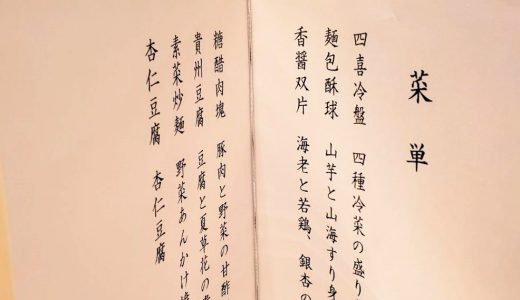 菜単
四喜冷盤 四種冷菜の盛り
麺包酥球 山芋と山海すり身
香醤双片 海老と若鶏、銀杏の
糖醋肉塊 豚肉と野菜の甘酢
貴州豆腐 豆腐と夏草花の
素菜炒麺 野菜あんかけ
杏仁豆腐 杏仁豆腐